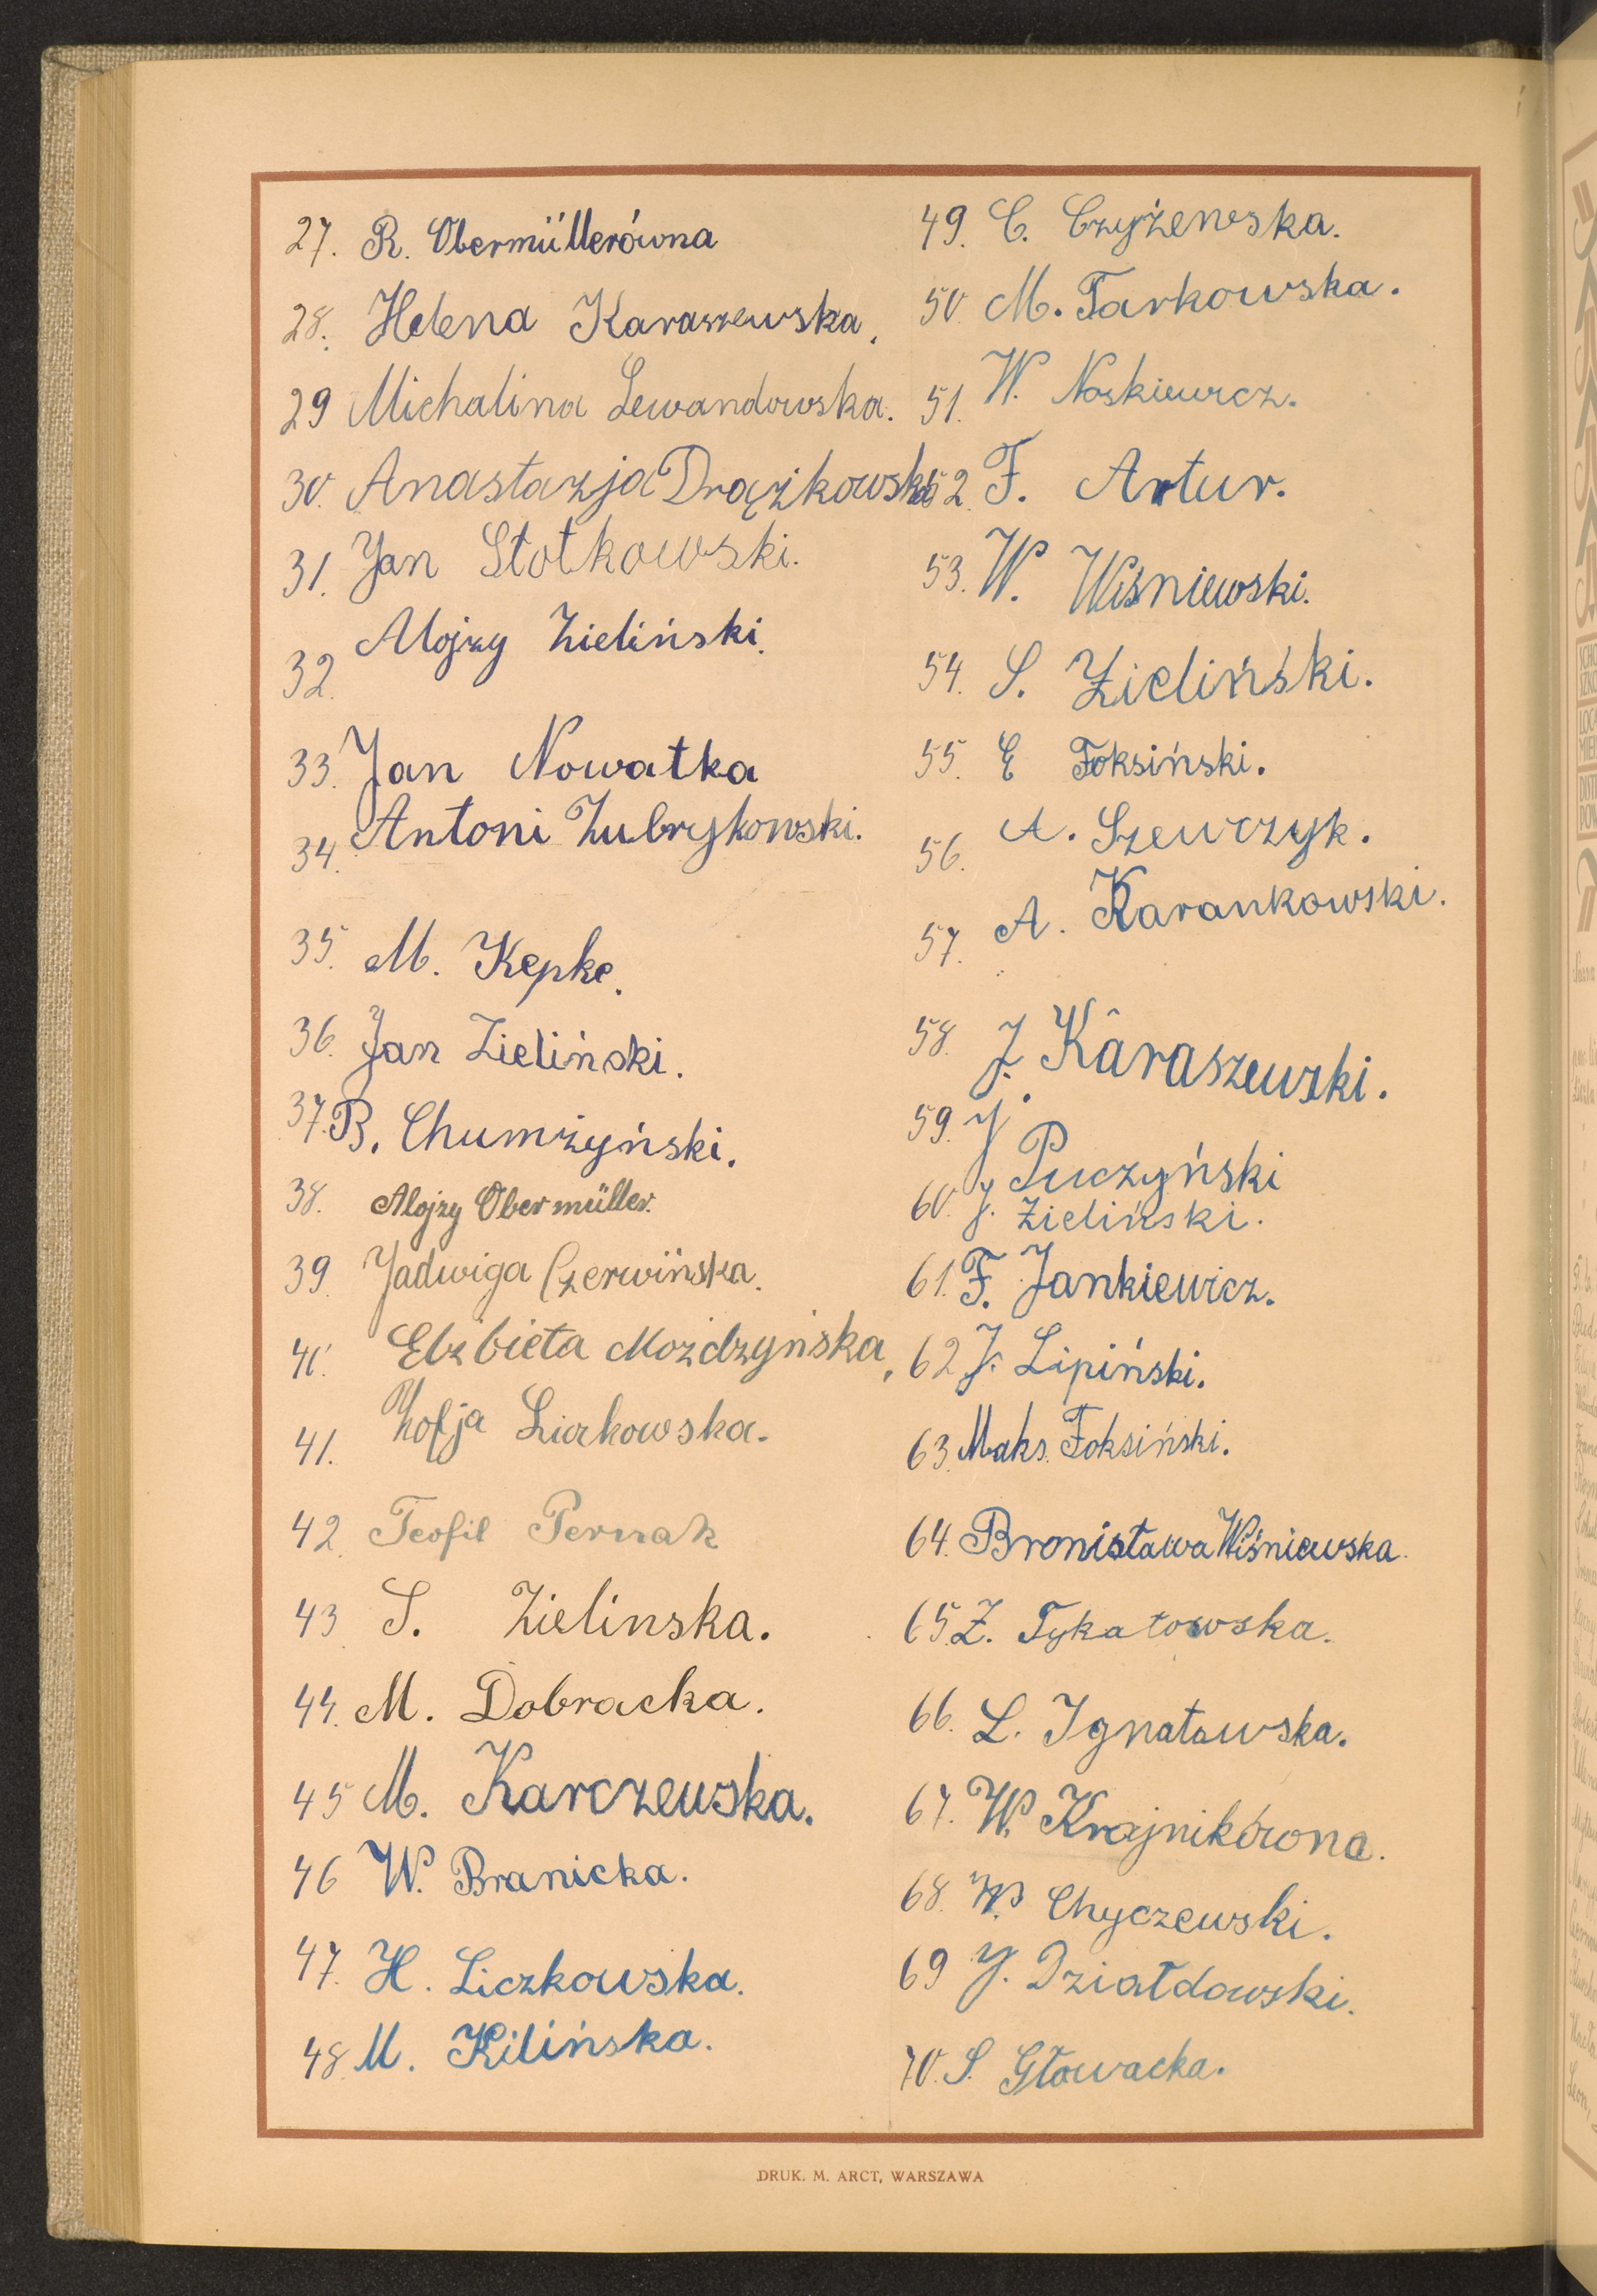 27. R. Obermüllerówna
28. Helena Karaszewska.
29 Michalina Lewandowska.
30. Anastazja Drążkowska
31. Jan Stotkowski.
32. Alojzy Zieliński.
33. Jan Nowatka
34. Antoni Zubrykowski.
35. M. Kepke.
36. Jan Zieliński.
37. B. Chumżyński.
38. Alojzy Obermüller.
39. Jadwiga Czerwińska.
40. Elżbieta Możdzyńska,
41. Zofja Liszkowska.
42. Teofil Pernak
43 S. Zielinska.
44. M. Dobracka.
45 M. Karczewska.
46 W. Branicka.
47. H. Liczkowska.
48. M. Kilińska.
49. C. Czyżewska.
50. M. Tarkowska.
51. W. Noskiewicz.
52. F. Artur.
53. W. Wiśniewski.
54. S. Zieliński.
55. E Foksiński.
56. A. Szewczyk.
57. A. Karankowski.
58. J. Karaszewski.
59. J Puczyński
60. J. Zieliński.
61. F. Jankiewicz.
62 J. Lipiński.
63. Maks. Foksiński.
64. Bronisława Wiśniewska.
65. Z. Tykatowska.
66. L. Ignatowska.
67. W. Krajnikówna.
68. W. Chyczewski.
69 J. Działdowski.
70. S. Głowacka.
DRUK. M. ARCT, WARSZAWA